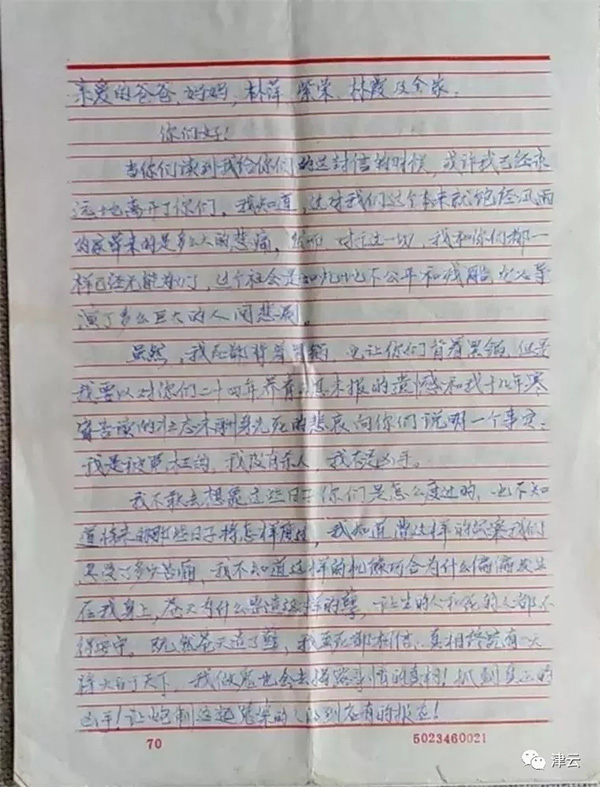 亲爱的爸爸、妈妈、林萍、紫荣、林霞及全家：
你们好！
当你们读到我给你们的这封信的时候，或许我已经永
远地离开了你们。我知道，这对我们这个本来就饱经风雨
的家带来的是多么大的悲痛，然而，对于这一切，我和你们都一
样已经无能为力了，这个社会是如此地不公平和残酷，
演了多么巨大的人间悲剧。
虽然，我死都背着黑锅，也让你们背着黑锅，但是
我要以对你们二十四年养育之恩未报的遗憾和我十几年寒
窗苦读的壮志未酬身先死的悲哀向你们说明一个事实：
我是被冤枉的，我没有杀人，我不是凶手。
我不敢去想象这些日子你们是怎么度过的，也不知
道将来的那些日子将怎样度过，我知道 这样的冤案我们
承受了多少苦痛，我不知道这样的机缘巧合为什么偏偏发生
在我身上，苍天为什么要造这样的孽，让生的人和死的人都不
得安宁。既然苍天造了孽，我至死都相信：真相终究有大
白于天下，我做鬼也会去揭露事情的真相！抓到真正的
凶手！让炮制这起冤案的人得到应有的报应！
70 5023460021
津云